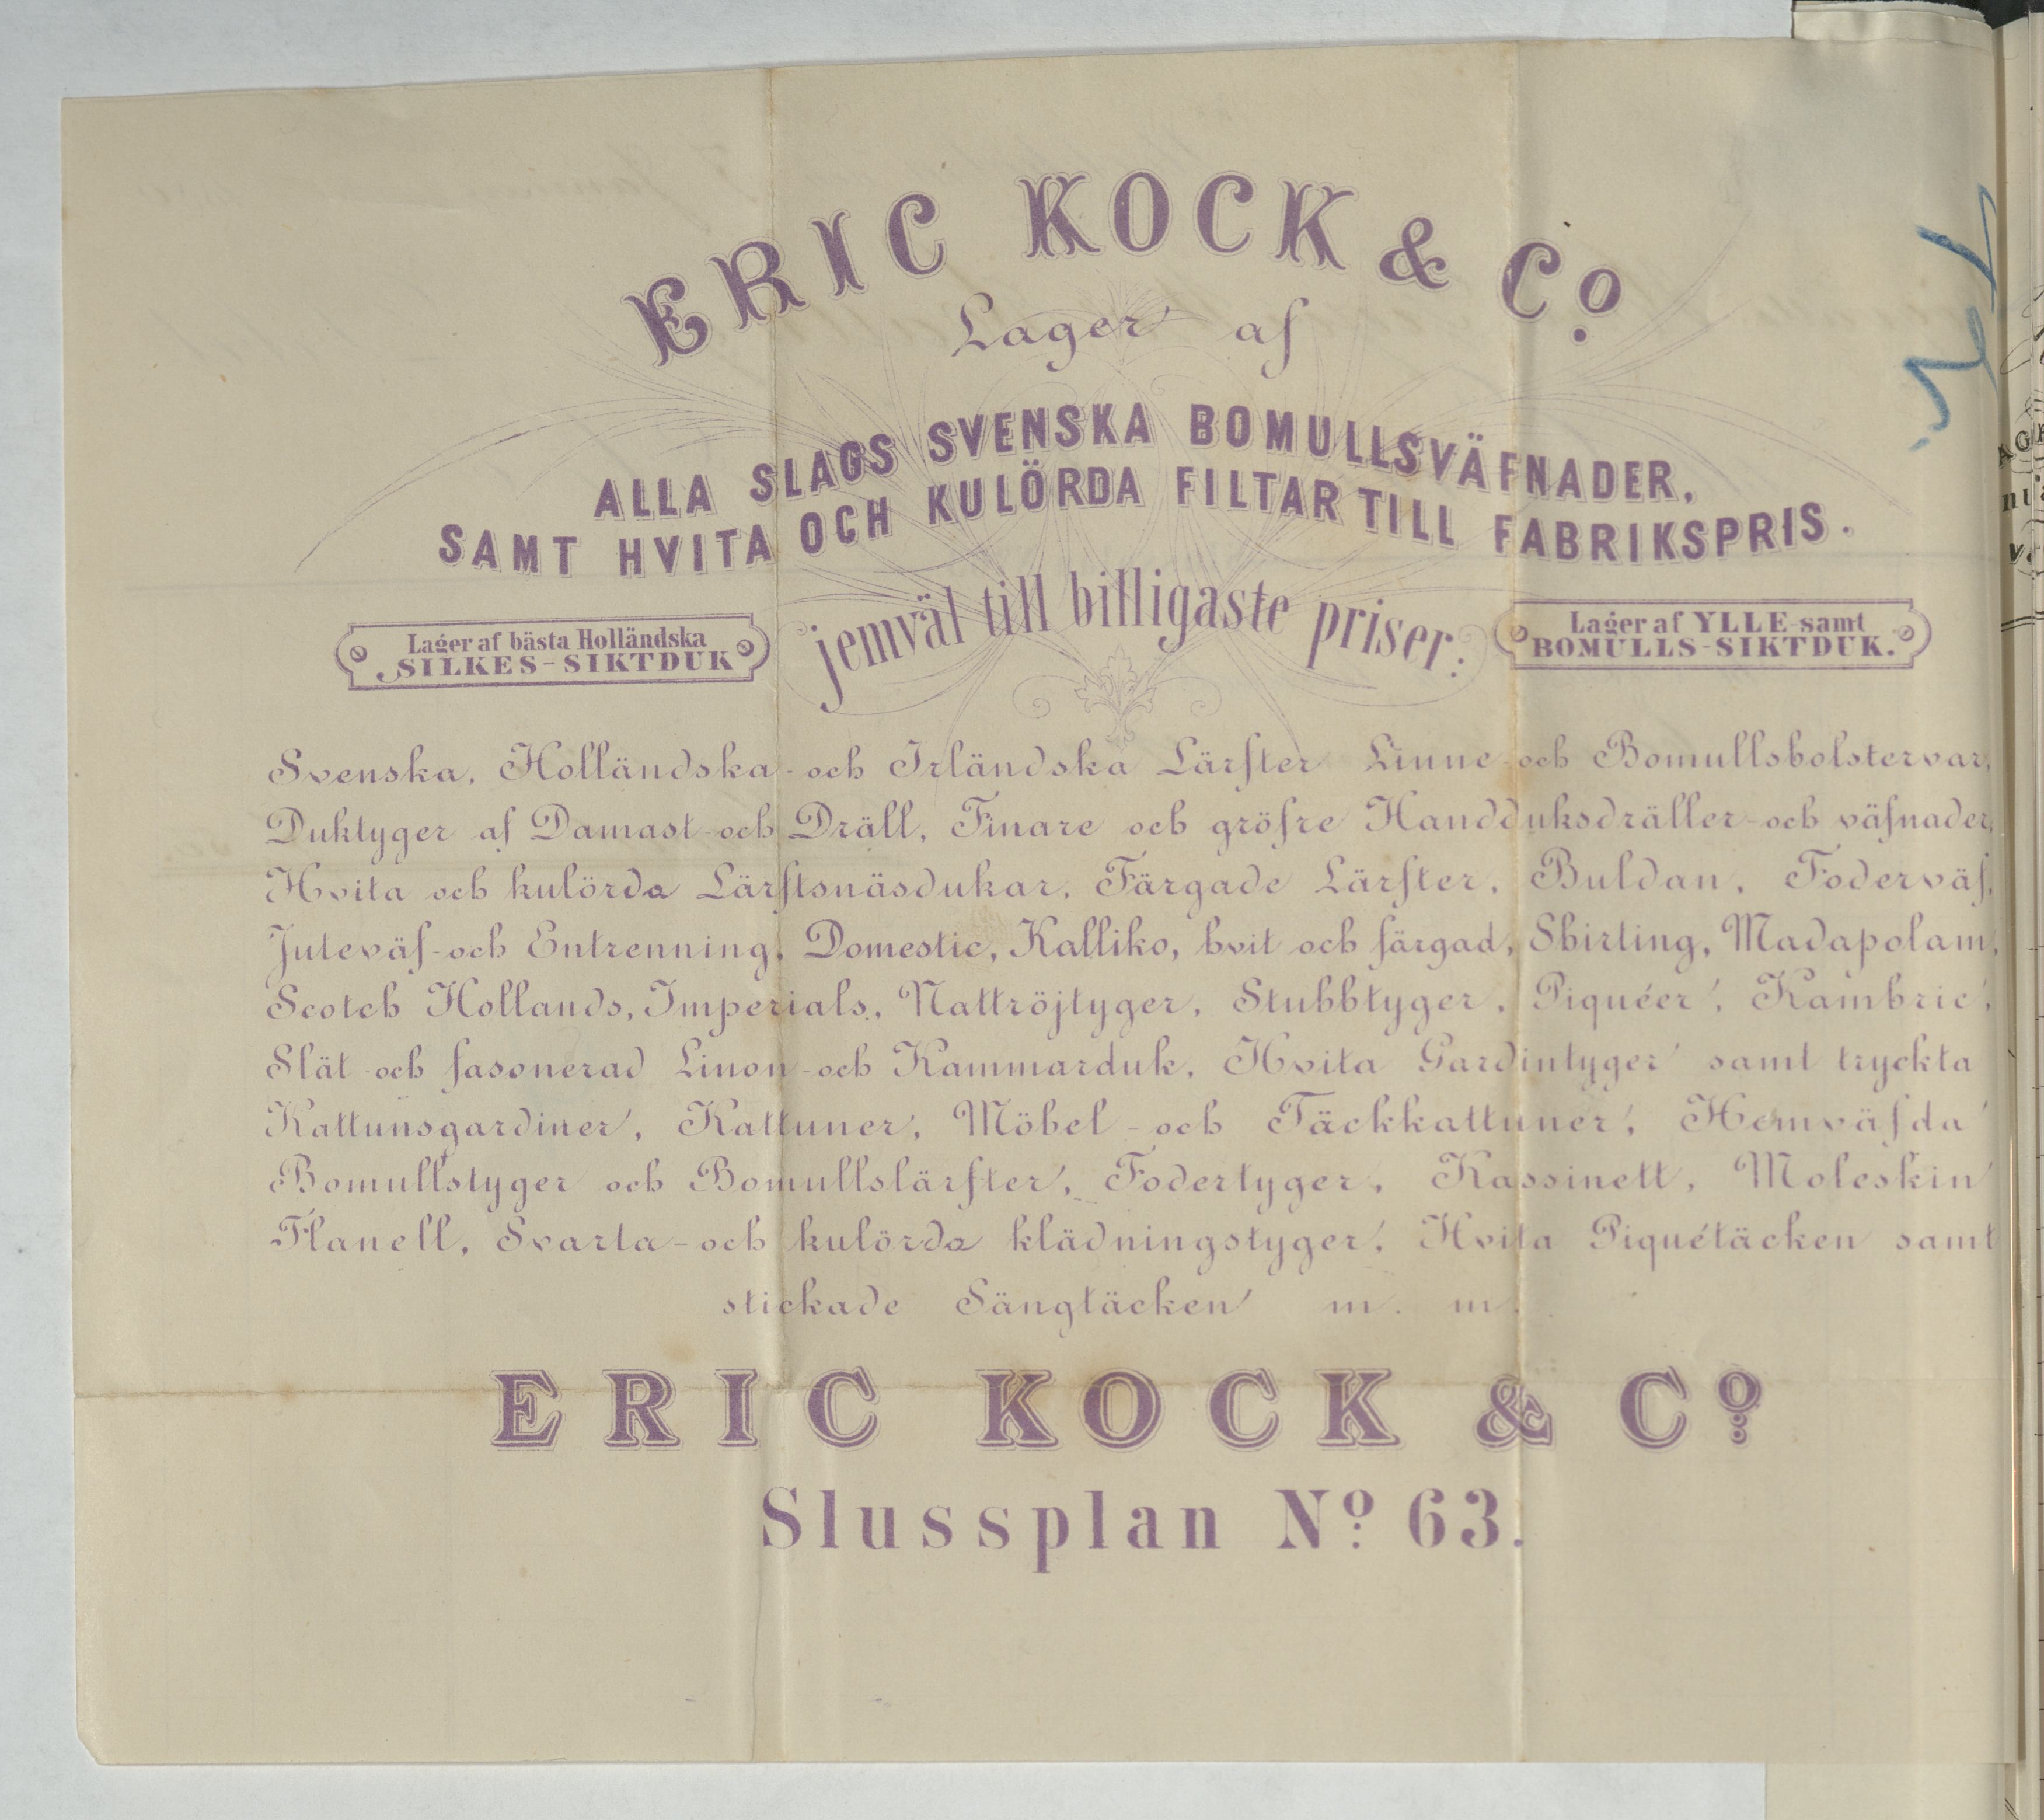 ERIC KOCK & Co
Lager af
ALLA SLAGS SVENSKA BOMULLSVÄFNADER,
SAMT HVITA OCH KULÖRDA FILTAR TILL FABRIKSPRIS.
Lager af bästa Holländska
SILKES-SIKTDUK
jemväl till billigaste priser:
Lager af YLLE-samt
BOMULLS-SIKTDUK.
Svenska, Holländska-och Irländska Lärfter Linne-och Bomullsbolstervar,
Duktyger af Damast-och Dräll, Finare och gröfre Handduksdräller-och väfnader,
Hvita och kulörda Lärftsnäsdukar, Färgade Lärfter, Buldan, Foderväf,
Juteväf-och Entrenning, Domestic, Kalliko, hvit och färgad, Shirting, Madapolam,
Scotch Hollands, Imperials, Nattröjtyger, Stubbtyger, Piquéer, Kambric,
Slät-och fasonerad Linon-och Kammarduk, Hvita Gardintyger samt tryckta
Kattunsgardiner, Kattuner, Möbel-och Täckkattuner, Hemväfda
Bomullstyger och Bomullslärfter, Fodertyger, Kassinett, Moleskin
Flanell, Svarta-och kulörda klädningstyger, Hvita Piquétäcken samt
stickade Sängtäcken m. m.
ERIC KOCK & Co
Slussplan No 63.